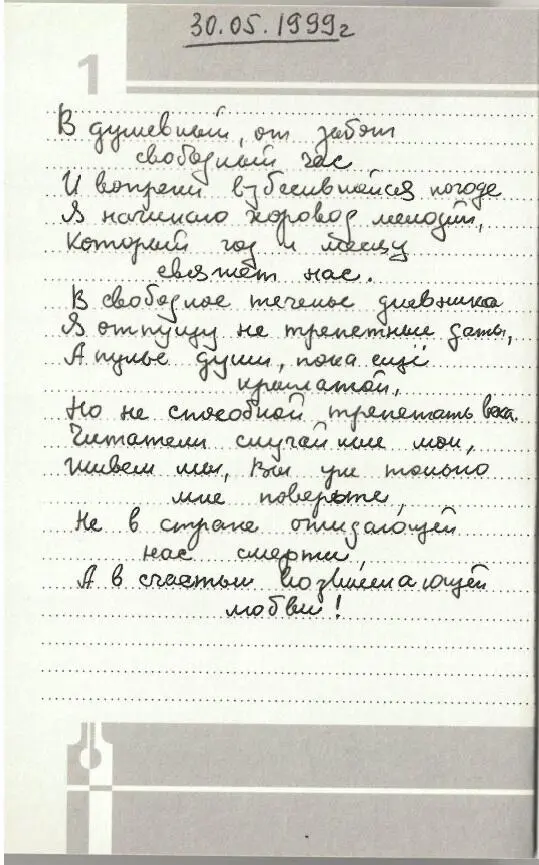 30.05.1999г
1
В душевный, от забот
свободный час
И вопреки взбесившейся погоде
Я начинаю хоровод мелодий,
Который год и месяц
свяжет нас.
В свободное теченье дневника
Я отпущу не трепетные даты,
А пульс души, пока ещё
крылатой,
Но не способной трепетать века.
Читатели случайные мои,
Живем мы, Вы уж только
мне поверьте,
Не в страхе ожидающей
нас смерти,
А в счастьи возвышающей
любви!